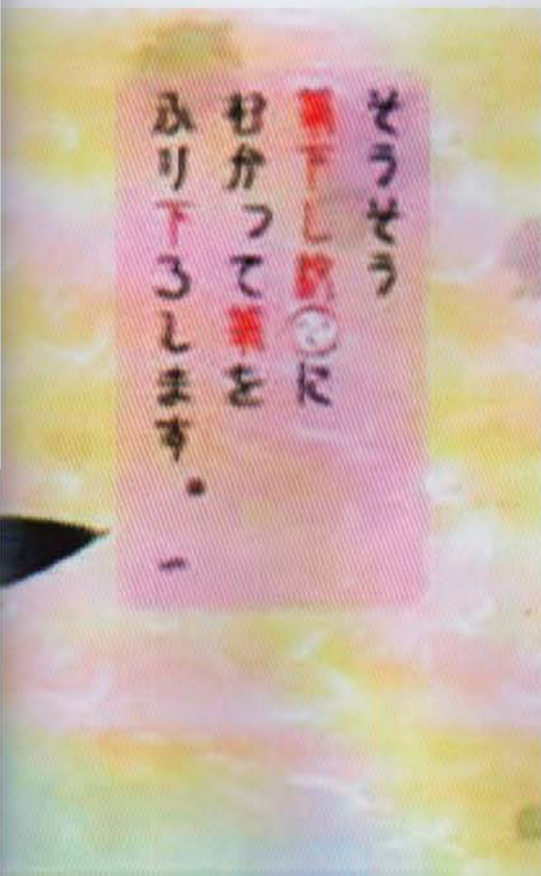 そうそう
筆下し に
むかって筆を
ふり下ろします。